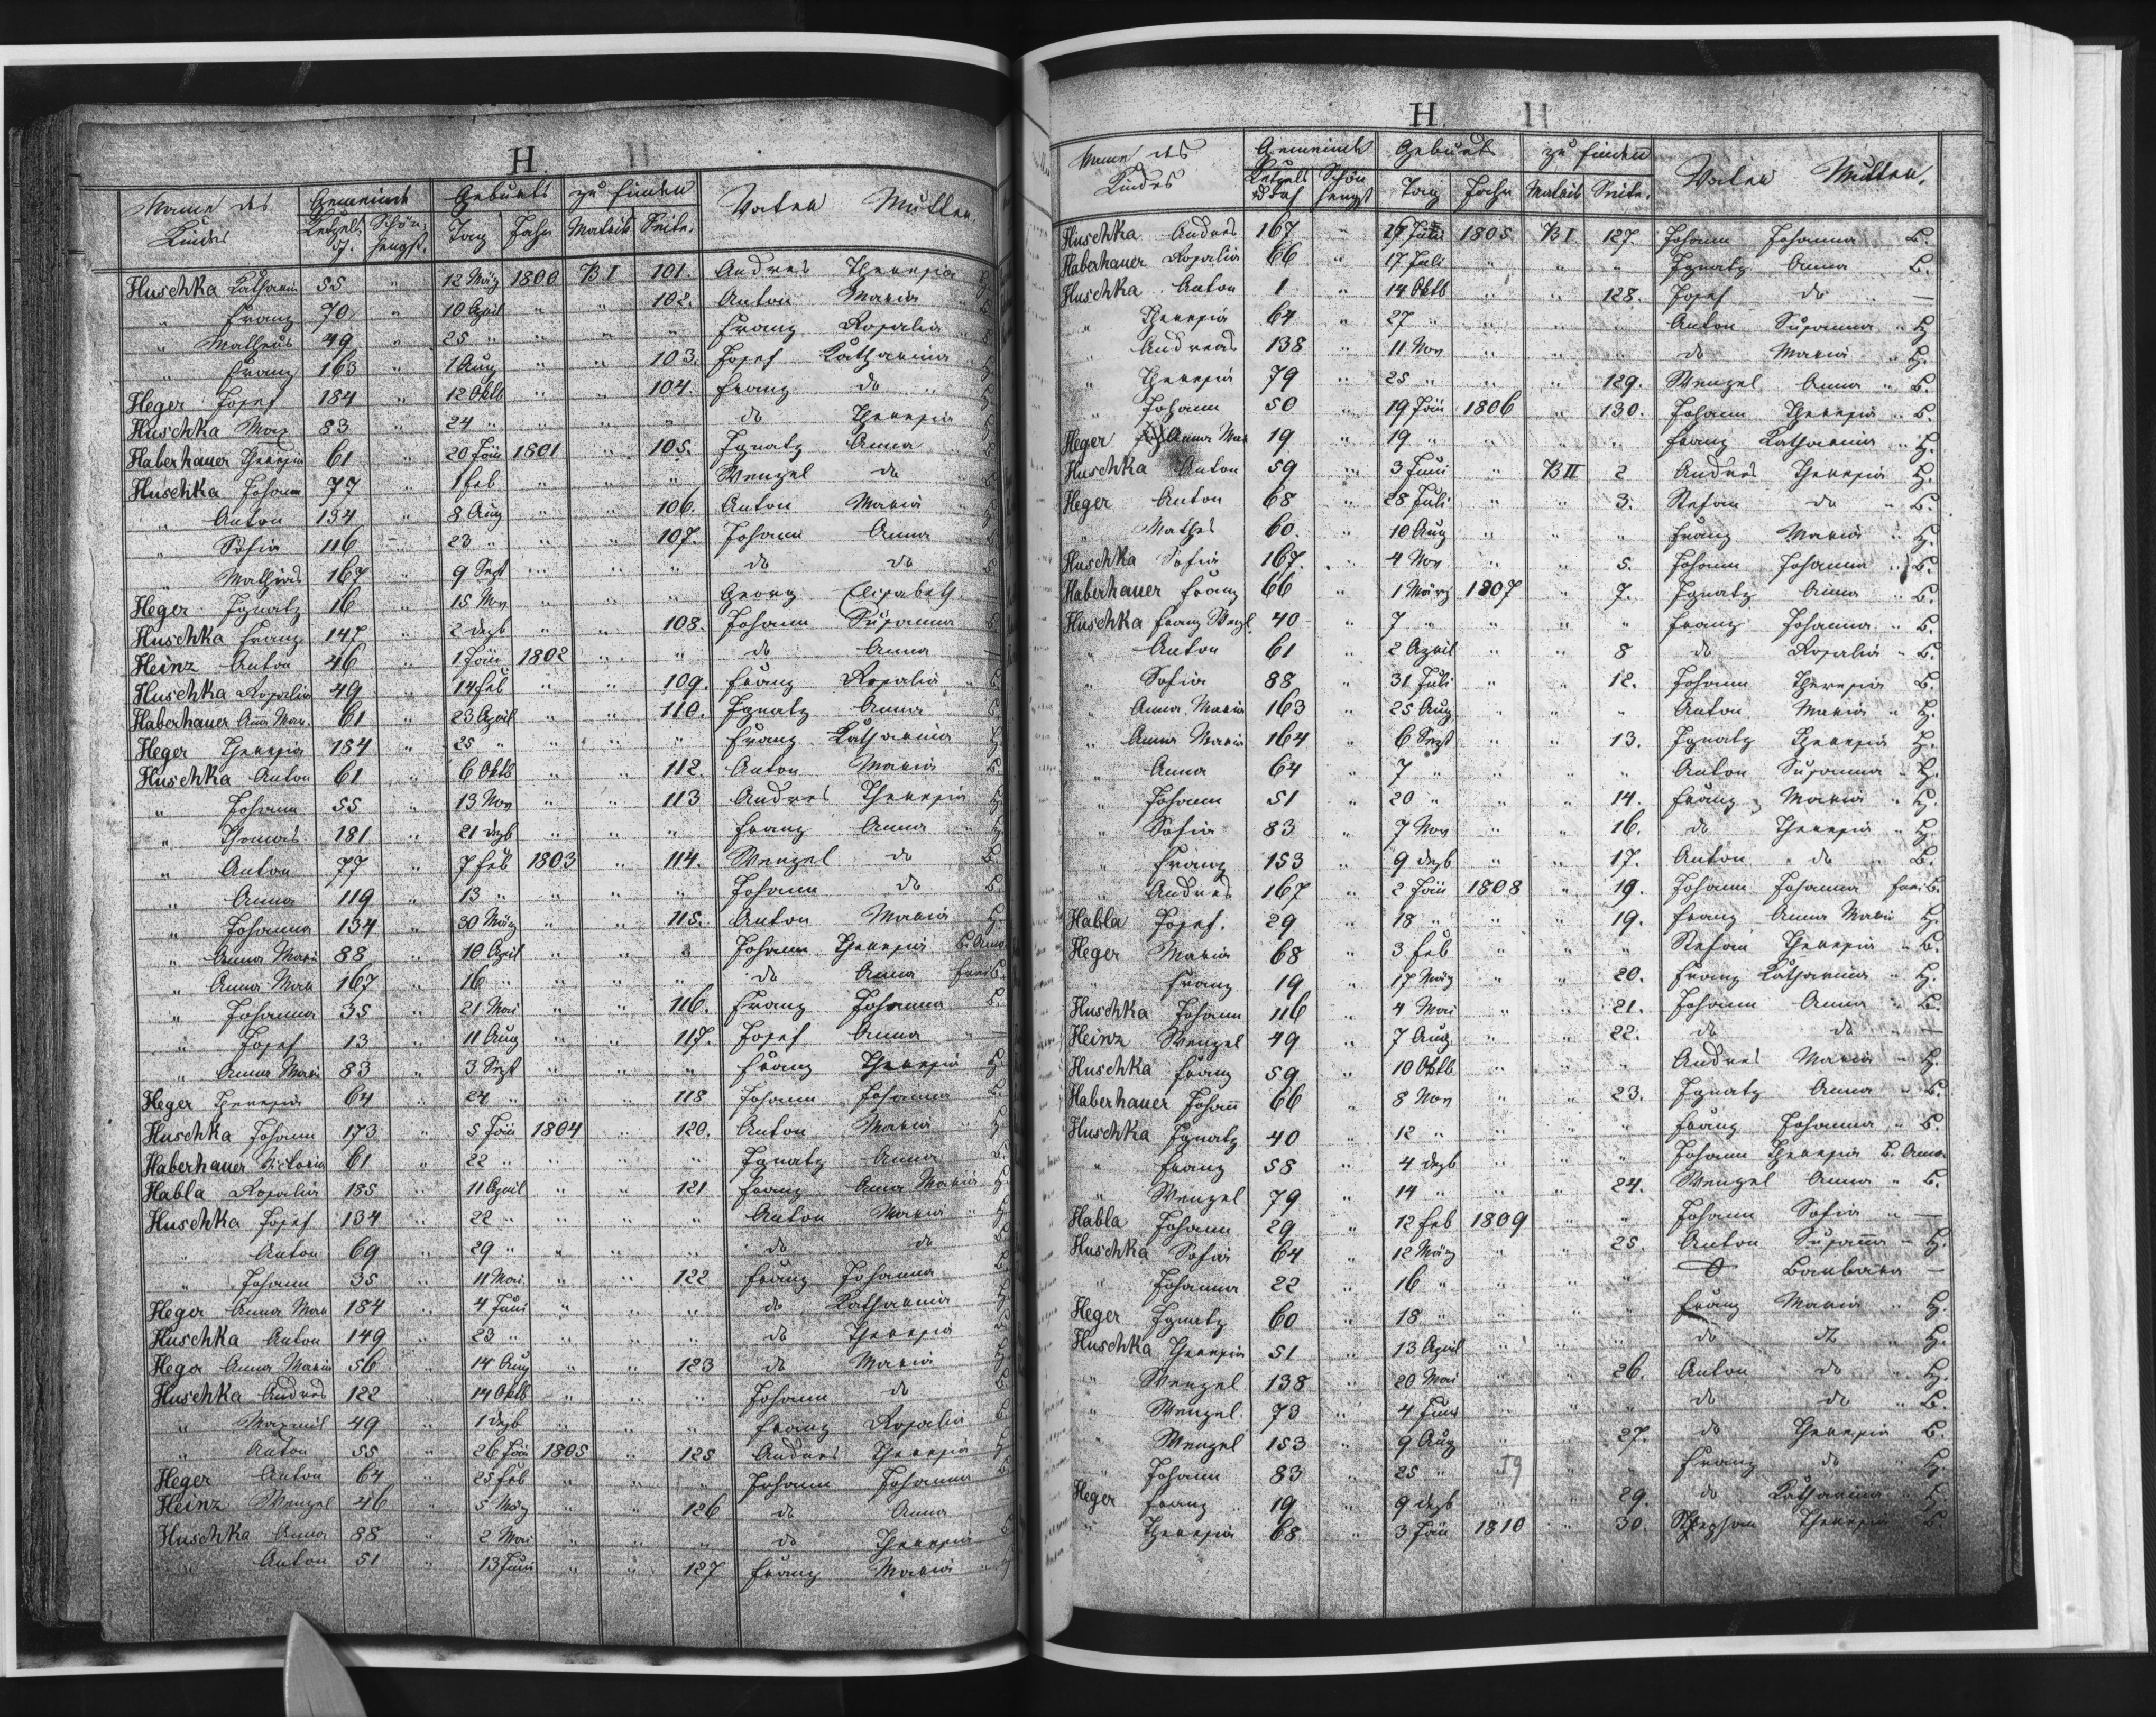 H.
Name des Kindes Gemeinde Geburts zu finden Vater Mutter.
Ketzelsd. Schönhengst. Tag Jahr Matrik Seite.
Huschka Katharin 55 " 12 März 1800 B I 101. Andres Theresia " H
" Franz 70 " 10 April " " 102. Anton Maria " B
" Matheus 49 " 25 " " " " Franz Rosalia " B
" Franz 163 " 1 Aug " " 103. Josef Katharina " H
Heger Josef 184 " 12 Oktb " " 104. Franz do " H
Huschka Max 83 " 24 " " " " do Theresia H
Haberhauer Theresia 61 " 20 Jäñ 1801 " 105. Ignatz Anna B
Huschka Johann 77 " 1 Feb " " " Wenzel do B
" Anton 134 " 8 Aug " " 106. Anton Maria " H
" Sofia 116 " 23 " " " 107. Johann Anna B
" Mathias 167 " 9 Sept " " " do do B
Heger Ignatz 16 " 15 Nov " " " Georg Elisabeth —
Huschka Franz 147 " 2 dezb " " 108. Johann Susanna B
Heinz Anton 46 " 1 Jäñ 1802 " " do Anna —
Huschka Rosalia 49 " 14 Feb " " 109. Franz Rosalia " B.
Haberhauer Ana Mar. 61 " 23 April " " 110. Ignatz Anna B.
Heger Theresia 184 " 25 " " " " Franz Katharina H.
Huschka Anton 61 " 6 Oktb " " 112. Anton Maria B.
" Johann 55 " 13 Nov " " 113 Andres Theresia H.
" Thomas 181 " 21 dezb " " " Franz Anna " H.
" Anton 77 " 7 Feb 1803 " 114. Wenzel do B.
" Anna 119 " 13 " " " " Johann do B.
" Johanna 134 " 30 März " " 115. Anton Maria H.
" Anna Maria 88 " 10 April " " " Johann Theresia B. Anna
" Anna Mar 167 " 16 " " " " do Anna frei B.
" Johanna 35 " 21 Mai " " 116. Franz Johanna B.
" Josef 13 " 11 Aug " " 117. Josef Anna " —
" Anna Maria 83 " 3 Sept " " " Franz Theresia H.
Heger Theresia 64 " 24 " " " 118 Johann Johanna B.
Huschka Johann 173 " 5 Jäñ 1804 " 120. Anton Maria " H
Haberhauer Victoria 61 " 22 " " " " Ignatz Anna B.
Habla Rosalia 185 " 11 April " " 121 Franz Anna Maria H.
Huschka Josef 134 " 22 " " " " Anton Maria " H
" Anton 69 " 29 " " " " do do B
" Johann 35 " 11 Mai " " 122 Franz Johanna B
Heger Anna Mar 184 " 4 Juni " " " do Katharina H.
Huschka Anton 149 " 23 " " " " do Theresia B
Heger Anna Maria 56 " 14 Aug " " 123 do Maria H
Huschka Andres 122 " 14 Oktb " " " Johann do B
" Maxmil 49 " 1 dezb " " " Franz Rosalia B
" Anton 55 " 26 Jäñ 1805 " 125 Andres Theresia H
Heger Anton 64 " 25 Feb " " " Johann Johanna B
Heinz Wenzel 46 " 5 März " " 126 do Anna —
Huschka Anna 88 " 2 Mai " " " do Theresia B
" Anton 51 " 13 Juni " " 127 Franz Maria " H
H.
Name des Kindes Gemeinde Geburts zu finden Vater Mutter.
Ketzelsdorf Schönhengst Tag Jahr Matrik Seite.
Huschka Andres 167 " 27 1805 B I 127. Johann Johanna B.
Haberhauer Rosalia 66 " 17 Juli " " " Ignatz Anna B.
Huschka Anton 1 " 14 Oktb " " 128. Josef do " —
" Theresia 64 " 27 " " " " Anton Susanna " H
" Andreas 138 " 11 Nov " " " do Maria " H.
" Theresia 79 " 25 " " " 129. Wenzel Anna " B.
" Johann 50 " 19 Jäñ 1806 " 130. Johann Theresia " B.
Heger Anna Mar 19 " 19 " " " " Franz Katharina " H.
Huschka Anton 59 " 3 Juni " B II 2 Andres Theresia H.
Heger Anton 68 " 28 Juli " " 3. Stefan do " B.
" Mathes 60. " 10 Aug " " " Franz Maria " H.
Huschka Sofia 167. " 4 Nov " " 5. Johann Johanna " B.
Haberhauer Franz 66 " 1 März 1807 " 7. Ignatz Anna " B.
Huschka Franz Wenzl 40 " 7 " " " " Franz Johanna " B.
" Anton 61 " 2 April " " 8 do Rosalia " B.
" Sofia 88 " 31 Juli " " 12. Johann Theresia B.
" Anna Maria 163 " 25 Aug " " " Anton Maria " H.
" Anna Maria 164 " 6 Sept " " 13. Ignatz Theresia H.
" Anna 64 " 7 " " " " Anton Susanna " H.
" Johann 51 " 20 " " " 14. Franz Maria " H.
" Sofia 83 " 7 Nov " " 16. do Theresia " H.
" Franz 153 " 9 dezb " " 17. Anton " do " B.
" Andres 167 " 2 Jäñ 1808 " 19. Johann Johanna frei B.
Habla Josef. 29 " 18 " " " 19. Franz Anna Maria H.
Heger Maria 68 " 3 Feb " " " Stefan Theresia " B.
" Franz 19 " 17 März " " 20. Franz Katharina " H.
Huschka Johann 116 " 4 Mai " " 21. Johann Anna " B.
Heinz Wenzel 49 " 7 Aug " " 22. do do " —
Huschka Franz 59 " 10 Oktb " " " Andres Maria " H.
Haberhauer Johañ 66 " 8 Nov " " 23. Ignatz Anna " B.
Huschka Ignatz 40 " 12 " " " " Franz Johanna " B.
" Franz 58 " 4 dezb " " " Johann Theresia B. Anna
" Wenzel 79 " 14 " " " 24. Wenzel Anna " B.
Habla Johann 29 " 12 Feb 1809 " " Johann Sofia " —
Huschka Sofia 64 " 12 März " " 25. Anton Susaña " H.
" Johanna 22 " 16 " " " " Barbara —
Heger Ignatz 60 " 18 " " " " Franz Maria " H.
Huschka Theresia 51 " 13 April " " " do do " H.
" Wenzel 138 " 20 Mai " " 26. Anton do " H.
" Wenzel 73 " 4 Juni " " " do do " B.
" Wenzel 153 " 9 Aug " " 27. do Theresia B.
" Johann 83 " 25 " " " " Franz do " H.
Heger Franz 19 " 9 dezb " " 29. do Katharina " H
" Theresia 68 " 3 Jäñ 1810 " 30. Stephan Theresia B.